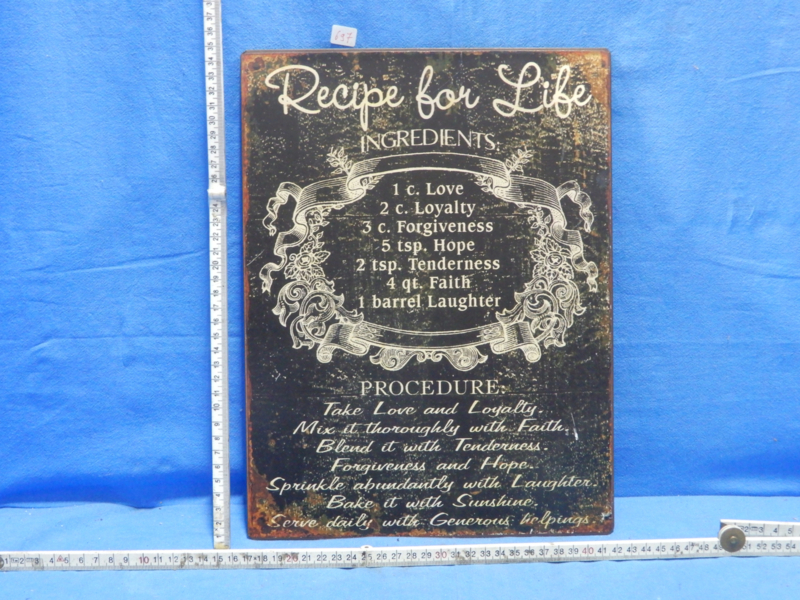 697
Recipe for Life
INGREDIENTS:
1 c. Love
2 c. Loyalty
3 c. Forgiveness
5 tsp. Hope
2 tsp. Tenderness
4 qt. Faith
1 barrel Laughter
PROCEDURE:
Take Love and Loyalty.
Mix it thoroughly with Faith.
Blend it with Tenderness.
Forgiveness and Hope.
Sprinkle abundantly with Laughter.
Bake it with Sunshine.
Serve daily with Generous helpings.